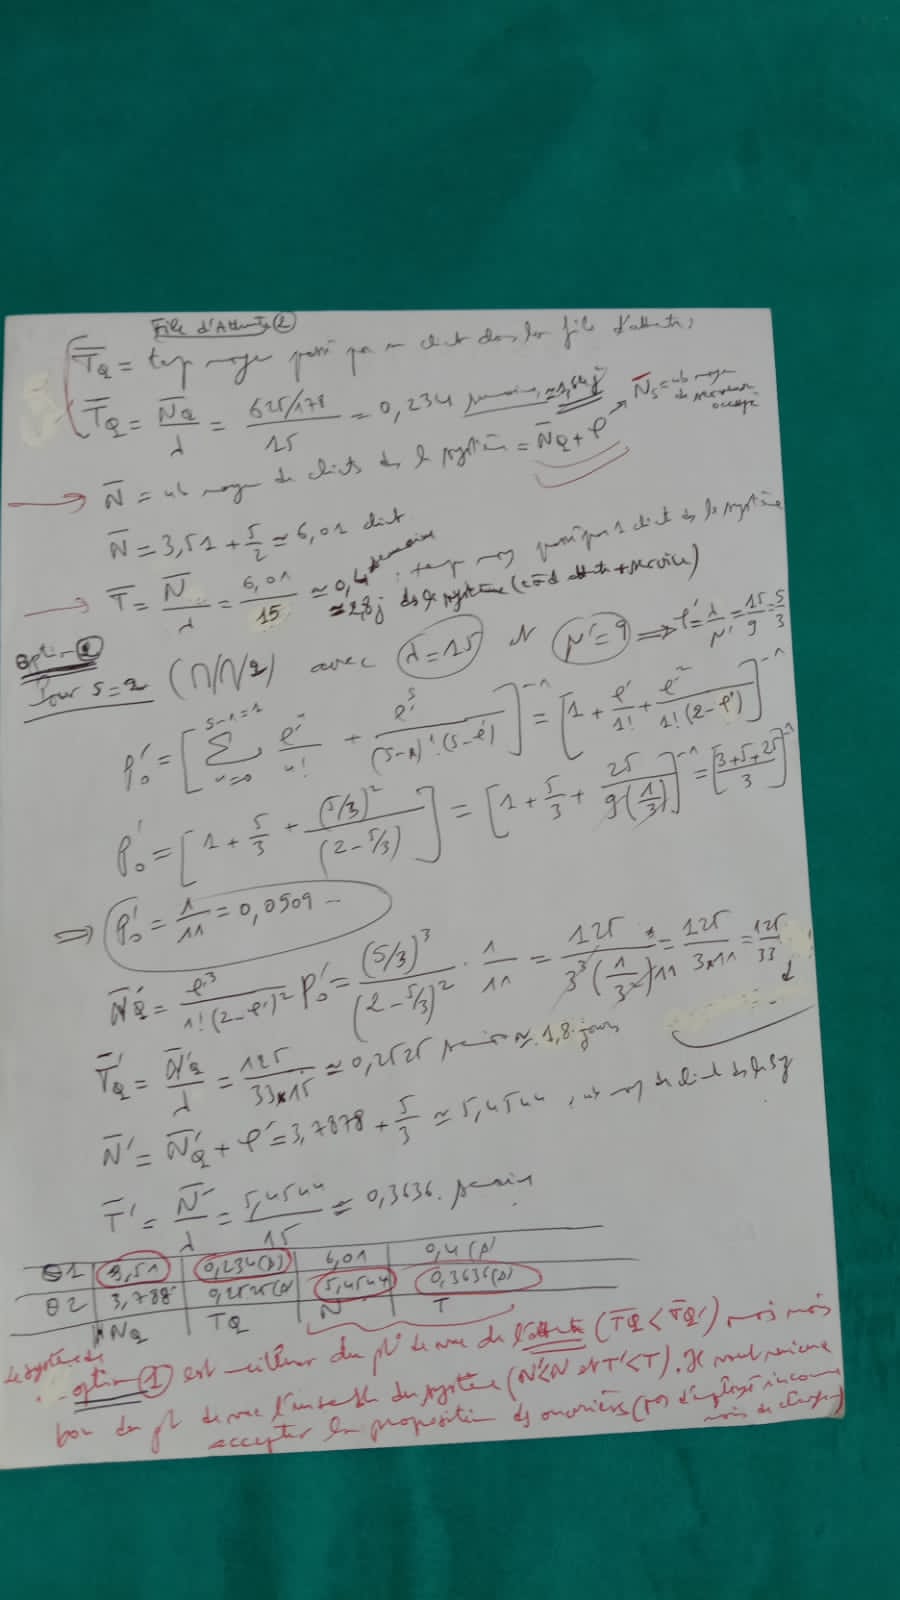 File d'Attente ②
T̄_Q = temps moyen passé par un client dans la file d'attente
T̄_Q = N̄_Q/λ = (625/178)/15 = 0,234 semaine ≃ 1,64 j
N̄_S = nb moyen de serveurs occupés
N̄ = nb moyen de clients ds le système = N̄_Q + ρ
N̄ = 3,51 + 5/2 ≃ 6,01 client
T̄ = N̄/λ = 6,01/15 ≃ 0,4 semaine : temps moy passé par 1 client ds le système
≃ 2,8 j ds le système (càd attente + service)
Option ②
Pour s=2 (M/M/2) avec λ=15 et μ'=9 ⟹ ρ'=λ/μ'=15/9=5/3
P'₀ = [ Σ_{n=0}^{s-1=1} ρ'ⁿ/n! + ρ'ˢ/((s-1)!(s-ρ')) ]⁻¹ = [1 + ρ'/1! + ρ'²/(1!(2-ρ'))]⁻¹
P'₀ = [1 + 5/3 + (5/3)²/(2-5/3)] = [1 + 5/3 + 25/(9(1/3))]⁻¹ = [(3+5+25)/3]⁻¹
⟹ P'₀ = 1/11 = 0,0909 --
N̄'_Q = ρ'³/(1!(2-ρ')²) P'₀ = (5/3)³/(2-5/3)² · 1/11 = 125/(3³(1/3²)11) = 125/(3×11) = 125/33
T̄'_Q = N̄'_Q/λ = 125/(33×15) ≃ 0,2525 semaine ≃ 1,8 jours
N̄' = N̄'_Q + ρ' = 3,7878 + 5/3 ≃ 5,4544 , nb moy de client ds le sy
T̄' = N̄'/λ = 5,4544/15 ≃ 0,3636. semaine
θ1 | 3,51 | 0,234(s) | 6,01 | 0,4(s)
θ2 | 3,788 | 0,2525(s) | 5,4544 | 0,3636(s)
NQ | TQ | N | T
le système de
option ① est meilleur du pt de vue de l'attente (T̄Q < T̄Q') mais moins
bon du pt de vue l'ensemble du système (N'<N et T'<T). Je
accepter la proposition des ouvriers (pas d'employé